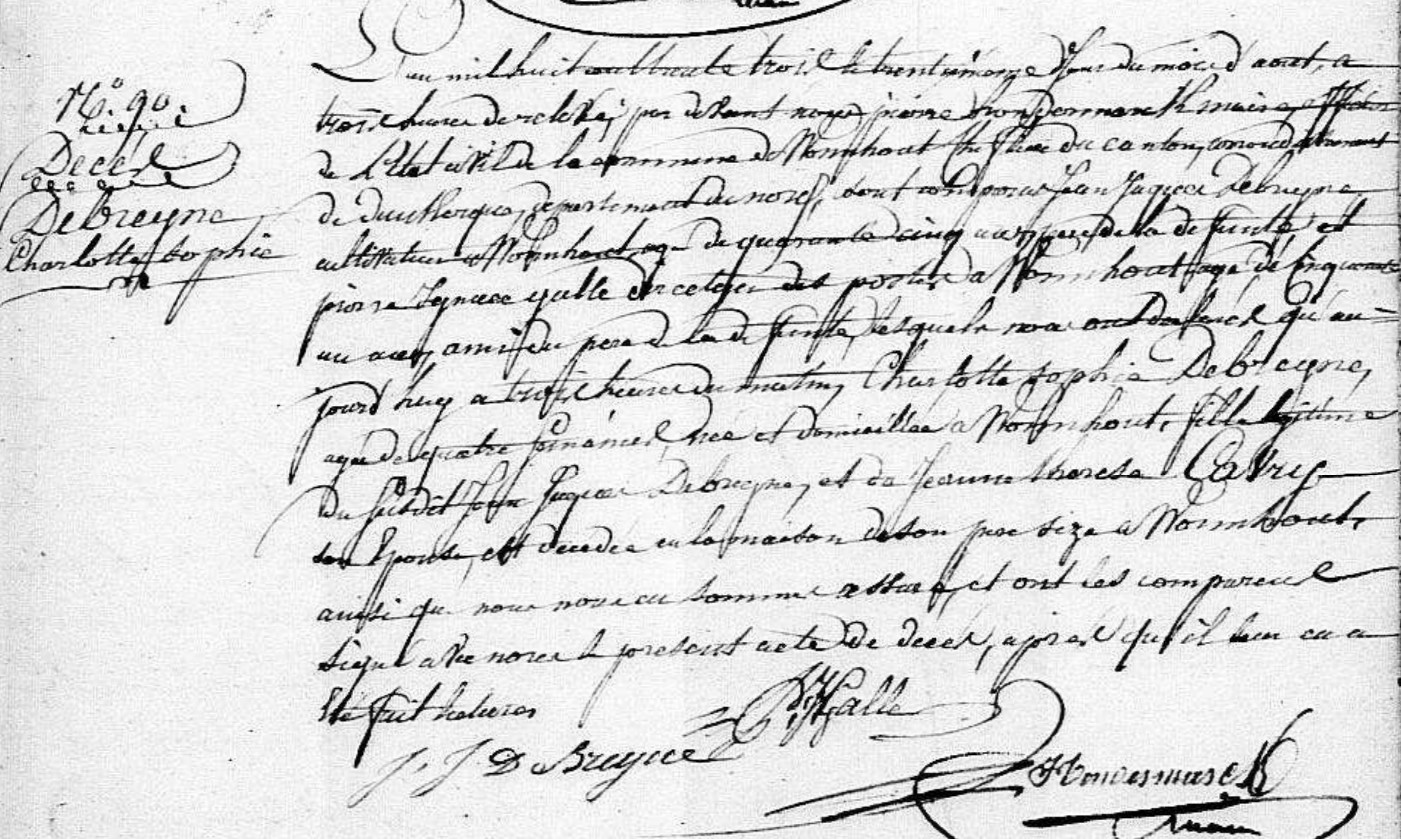 N.° 90.
Décés
Debreyne
Charlotte Sophie
L'an mil huit cent trente trois le trentième jour du mois d'aout, a
trois heures de relevée, par devant nous pierre hondermarck maire, officier
de l'Etat civil de la commune de Wormhout chef lieu du canton, arrondissement
de dunkerque, departement du nord, sont comparus Jean Jaques Debreyne,
cultivateur a Wormhout, agé de quarante cinq ans, pere de la defunte et
pierre Ignace galle directeur des postes a Wormhout agé de cinquante
un ans, ami du pere de la defunte, lesquels nous ont declarés qu'au=
jourd'huy a trois heures du matin, Charlotte Sophie Debreyne,
agée de quatre semaines, née et domiciliée a Wormhout, fille legitime
du susdit Jean Jaques Debreyne, et de Jeanne therese Catry
son Epouse, est decedée en la maison de son pere size a Wormhout,
ainsi que nous nous en sommes assuré, et ont les compareus
signé avec nous le present acte de décés, apres qu'il leur en a
été fait lecture
P. I. Galle
J. J. DeBreyne
Hondermarck
maire